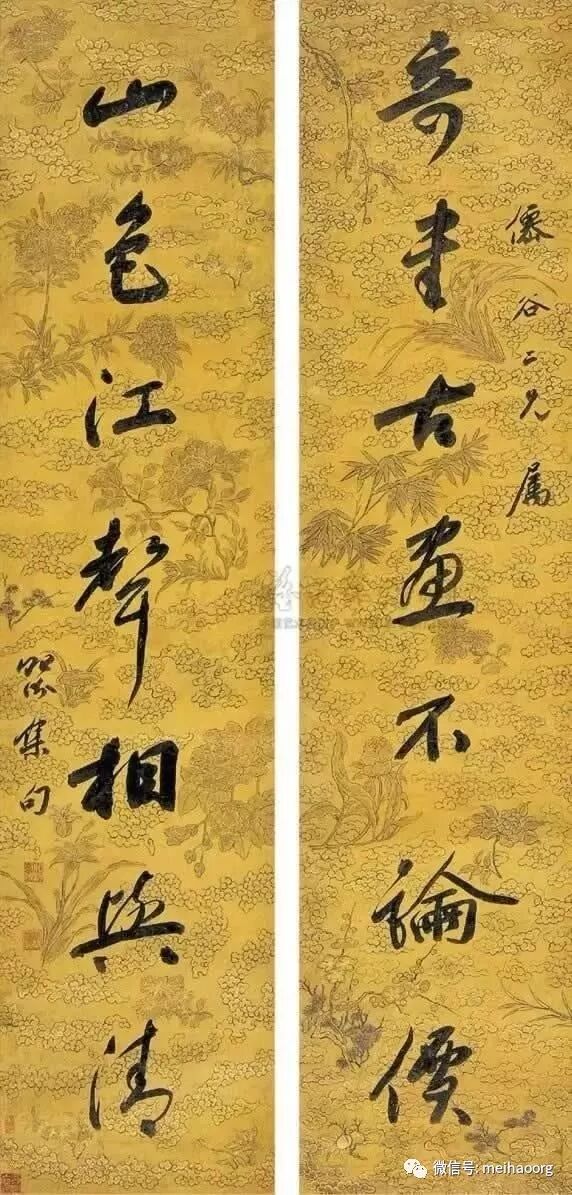 奇書古畫不論價
僊谷二兄属
山色江聲相與清
集句
微信号: meihaoorg